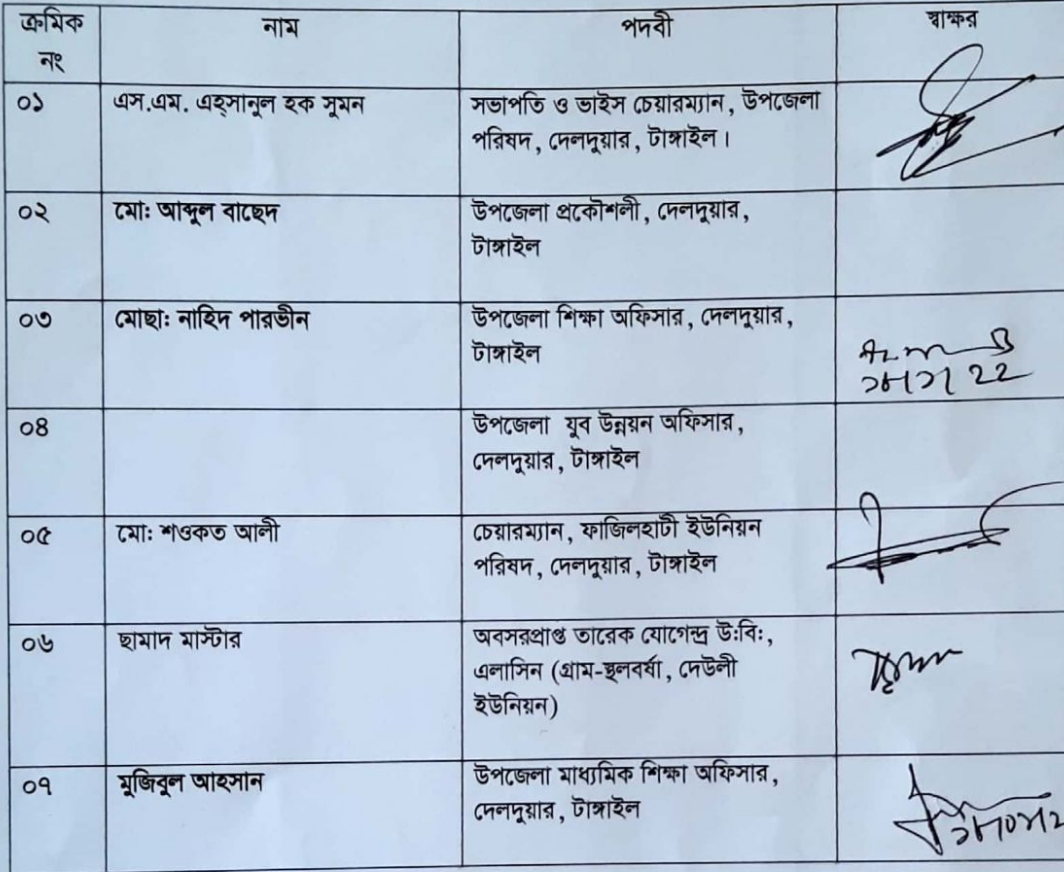 ক্রমিক নং নাম পদবী স্বাক্ষর
০১ এস.এম. এহ্সানুল হক সুমন সভাপতি ও ভাইস চেয়ারম্যান, উপজেলা
পরিষদ, দেলদুয়ার, টাঙ্গাইল।
০২ মো: আব্দুল বাছেদ উপজেলা প্রকৌশলী, দেলদুয়ার,
টাঙ্গাইল
০৩ মোছা: নাহিদ পারভীন উপজেলা শিক্ষা অফিসার, দেলদুয়ার,
টাঙ্গাইল
০৪ উপজেলা যুব উন্নয়ন অফিসার,
দেলদুয়ার, টাঙ্গাইল
০৫ মো: শওকত আলী চেয়ারম্যান, ফাজিলহাটী ইউনিয়ন
পরিষদ, দেলদুয়ার, টাঙ্গাইল
০৬ ছামাদ মাস্টার অবসরপ্রাপ্ত তারেক যোগেন্দ্র উ:বি:,
এলাসিন (গ্রাম-স্থলবর্ষা, দেউলী
ইউনিয়ন)
০৭ মুজিবুল আহসান উপজেলা মাধ্যমিক শিক্ষা অফিসার,
দেলদুয়ার, টাঙ্গাইল